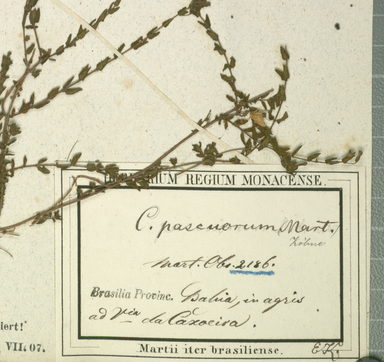 HERBARIUM REGIUM MONACENSE.
C. pascuorum (Mart.)
Köhne
Mart. Obs. 2186.
Brasilia Provinc. Bahia, in agris
ad V<sup>am</sup> da Caxoeira.
Martii iter brasiliense.
dert!
VII. 07.